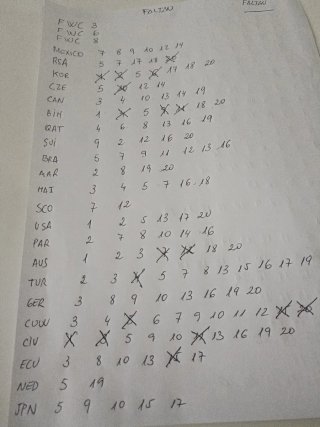 FALTAN FALTAN
FWC 3
FWC 6
FWC 8
MEXICO 7 8 9 10 12 14
RSA 5 7 17 18
KOR 5 17 18 20
CZE 5 12 14
CAN 3 4 10 13 14 19
BIH 1 5 18 20
QAT 4 6 8 13 16 19
SUI 9 2 12 16 20
BRA 5 7 9 11 12 13 16
MAR 2 8 19 20
HAI 3 4 5 7 16 18
SCO 7 12
USA 1 2 5 13 17 20
PAR 2 7 8 10 14 16
AUS 1 2 3 18 20
TUR 2 3 5 7 8 13 15 16 17 19
GER 3 8 9 10 13 16 19 20
CUW 3 4 6 7 9 10 11 12
CIV 5 9 10 13 16 19 20
ECU 3 8 10 13 17
NED 5 19
JPN 5 9 10 15 17